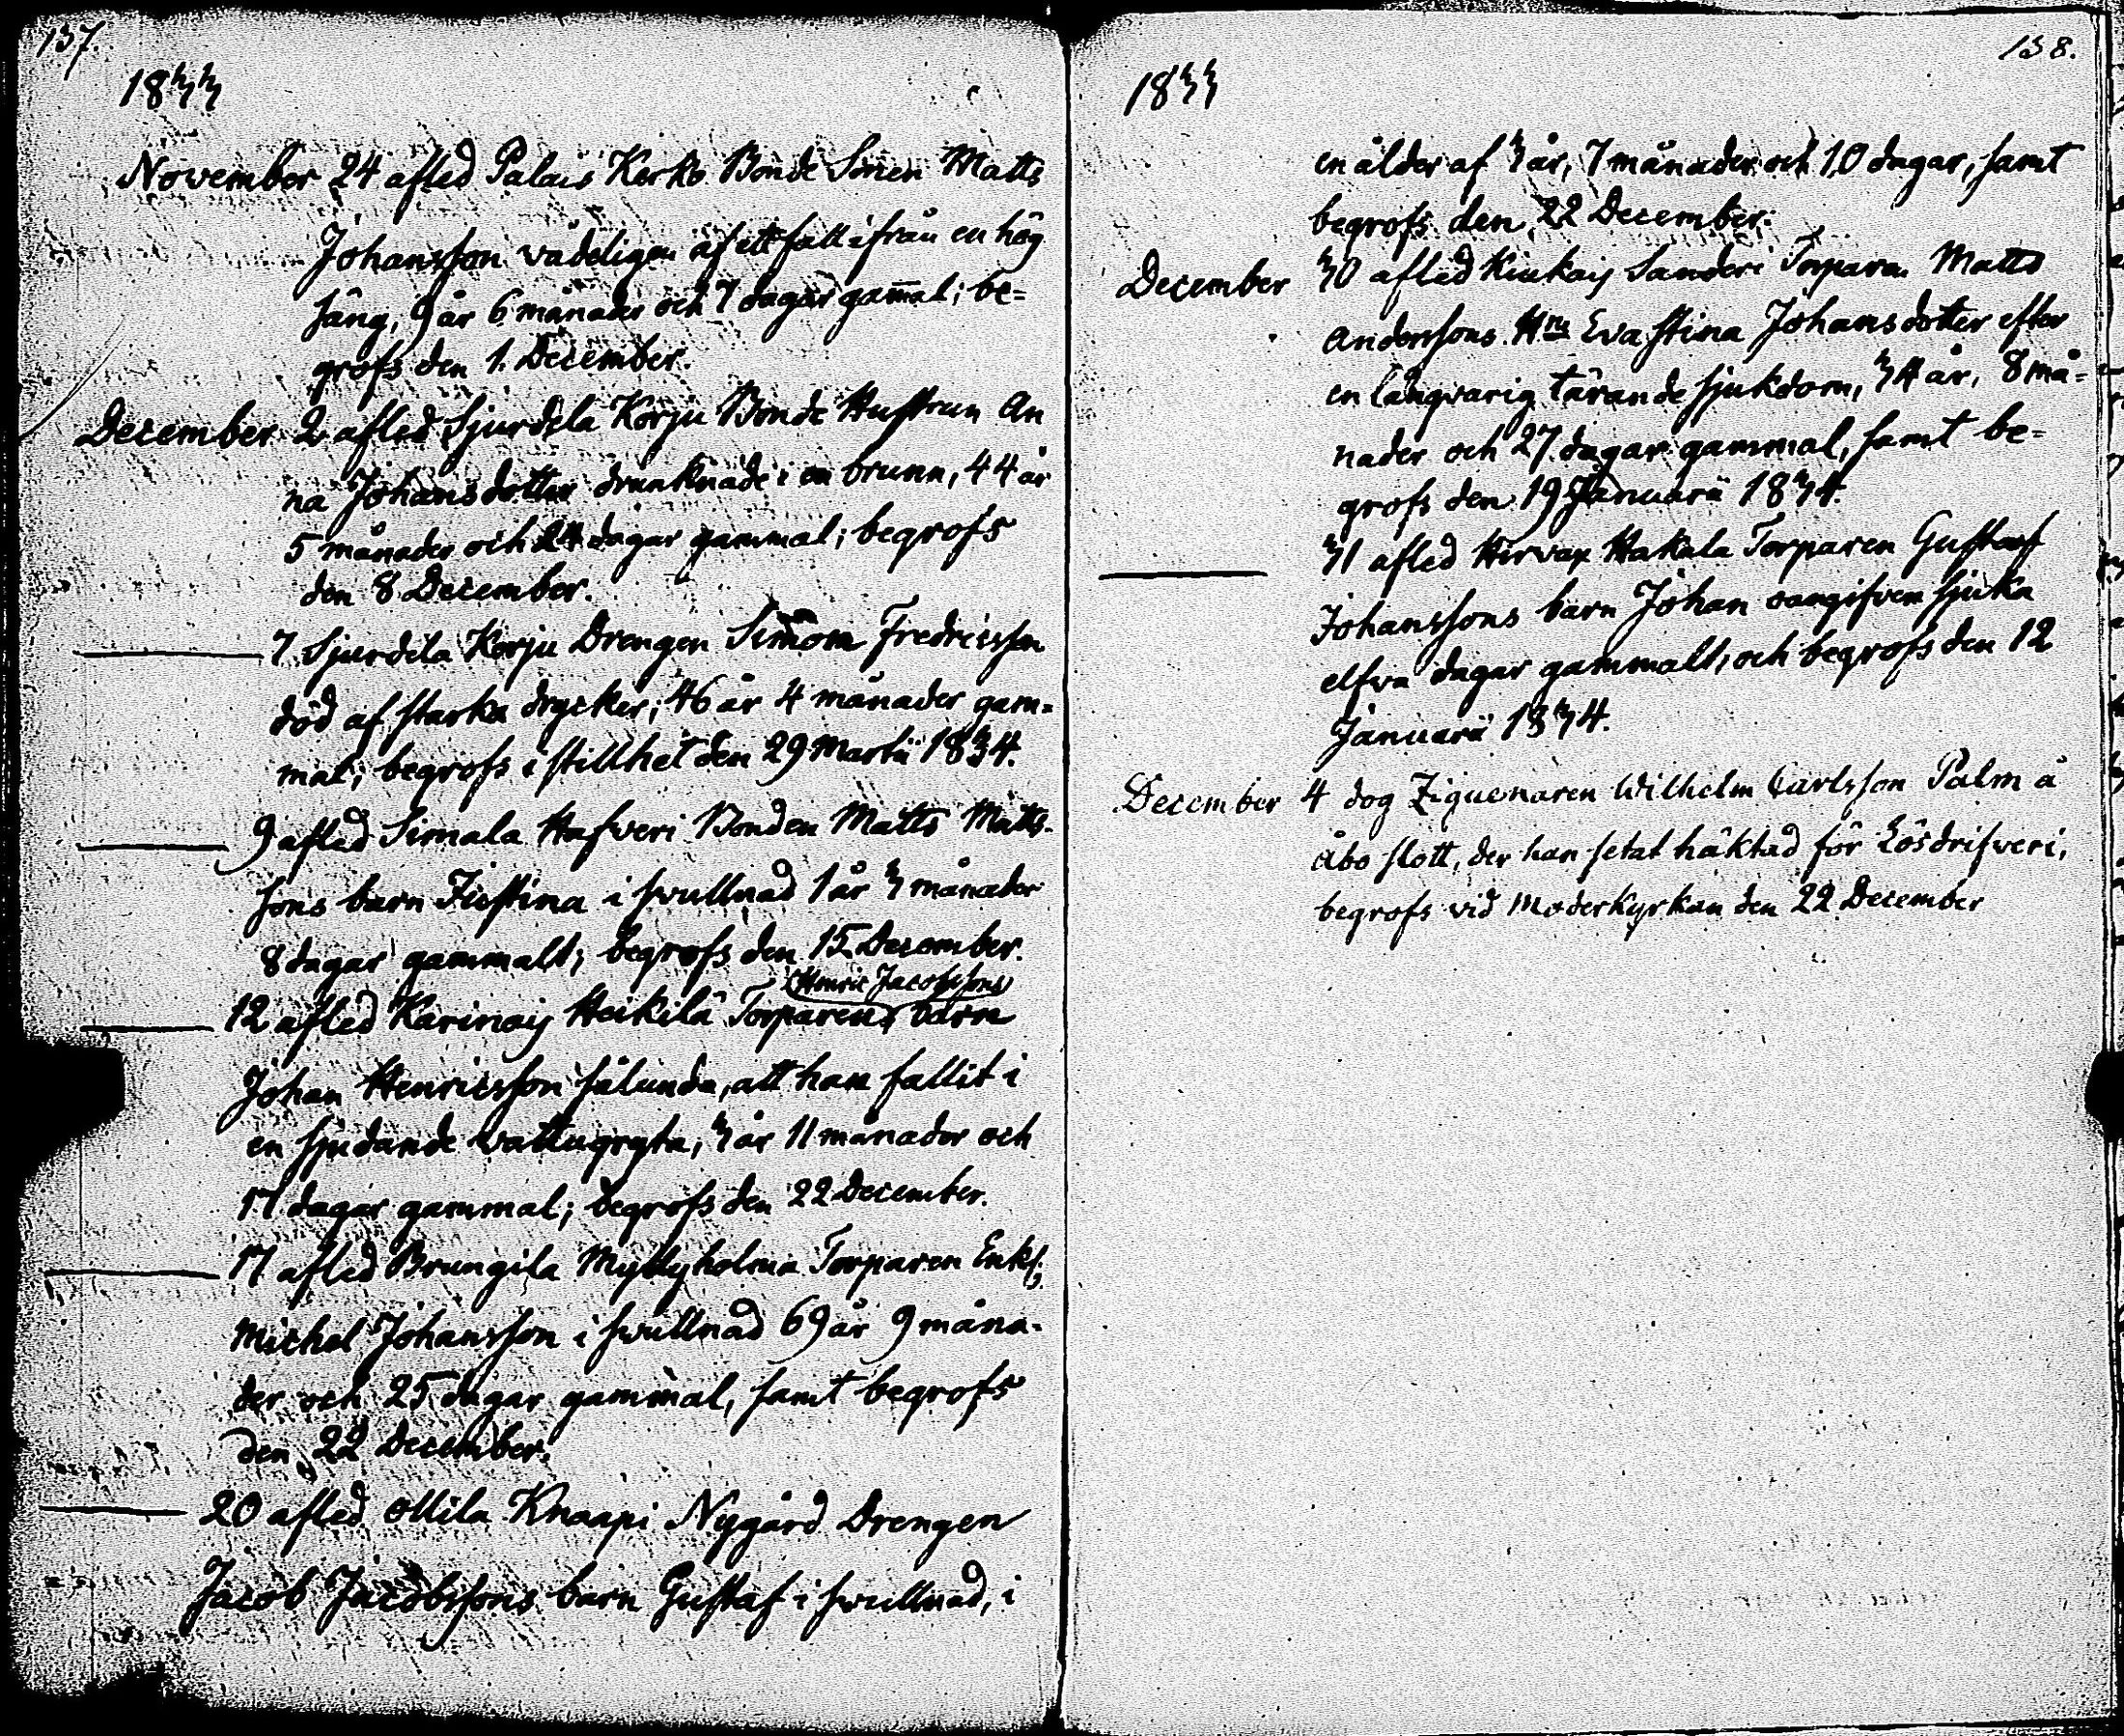 137.
1833
November 24 afled Palais Kerko Bonde Sonen Matts
Johansson vådeligen af ett fall ifrån en hög
säng, 9 år 6 månader och 7 dagar gam̄al; be=
grofs den 1. December.
December 2 afled Sjurdela Korju Bonde Hustrun An
na Johansdotter drunknade i en brunn, 44 år
5 månader och 24 dagar gammal; begrofs
den 8 December.
7 Sjurdela Korju Drengen Simon Fredricsson
död af starka drycker, 46 år 4 månader gam=
mal; begrofs i stillhet den 29 Martii 1834.
9 afled Simala Hafveri Bonden Matts Matts-
sons barn Fiestina i svullnad 1 år 3 månader
8 dagar gammalt; begrofs den 15 December.
Henric Jacobssons
12 afled Karinais Heikilä Torparens barn
Johan Henricsson sålunda, att han fallit i
en sjudande vattugryta, 3 år 11 månader och
17 dagar gammal; begrofs den 22 December.
17 afled Brungila Myllyholma Torparen Enkl:
Michel Johansson i svullnad 69 år 9 måna-
der och 25 dagar gammal, samt begrofs
den 22 December.
20 afled Ollila Knaapi Nygård Drengen
Jacob Jacobssons barn Gustaf i svullnad, i
138.
1833
en ålder af 3 år, 7 månader och 10 dagar, samt
begrofs den 22 December.
December 30 afled Kiukais Sanderi Torparn Matts
Anderssons Hru Eva Stina Johansdotter efter
en långvarig tärande sjukdom, 34 år, 8 må=
nader och 27 dagar gammal, samt be=
grofs den 19 Januarii 1834.
31 afled Hirvax Hakala Torparen Gustaf
Johanssons barn Johan oangifven sjuka
elfva dagar gammalt, och begrofs den 12
Januarii 1834.
December 4 dog Ziguenaren Wilhelm Carlsson Palm å
Åbo slott, der han setat häktad för Lösdrifveri,
begrofs vid Moderkyrkan den 22 December